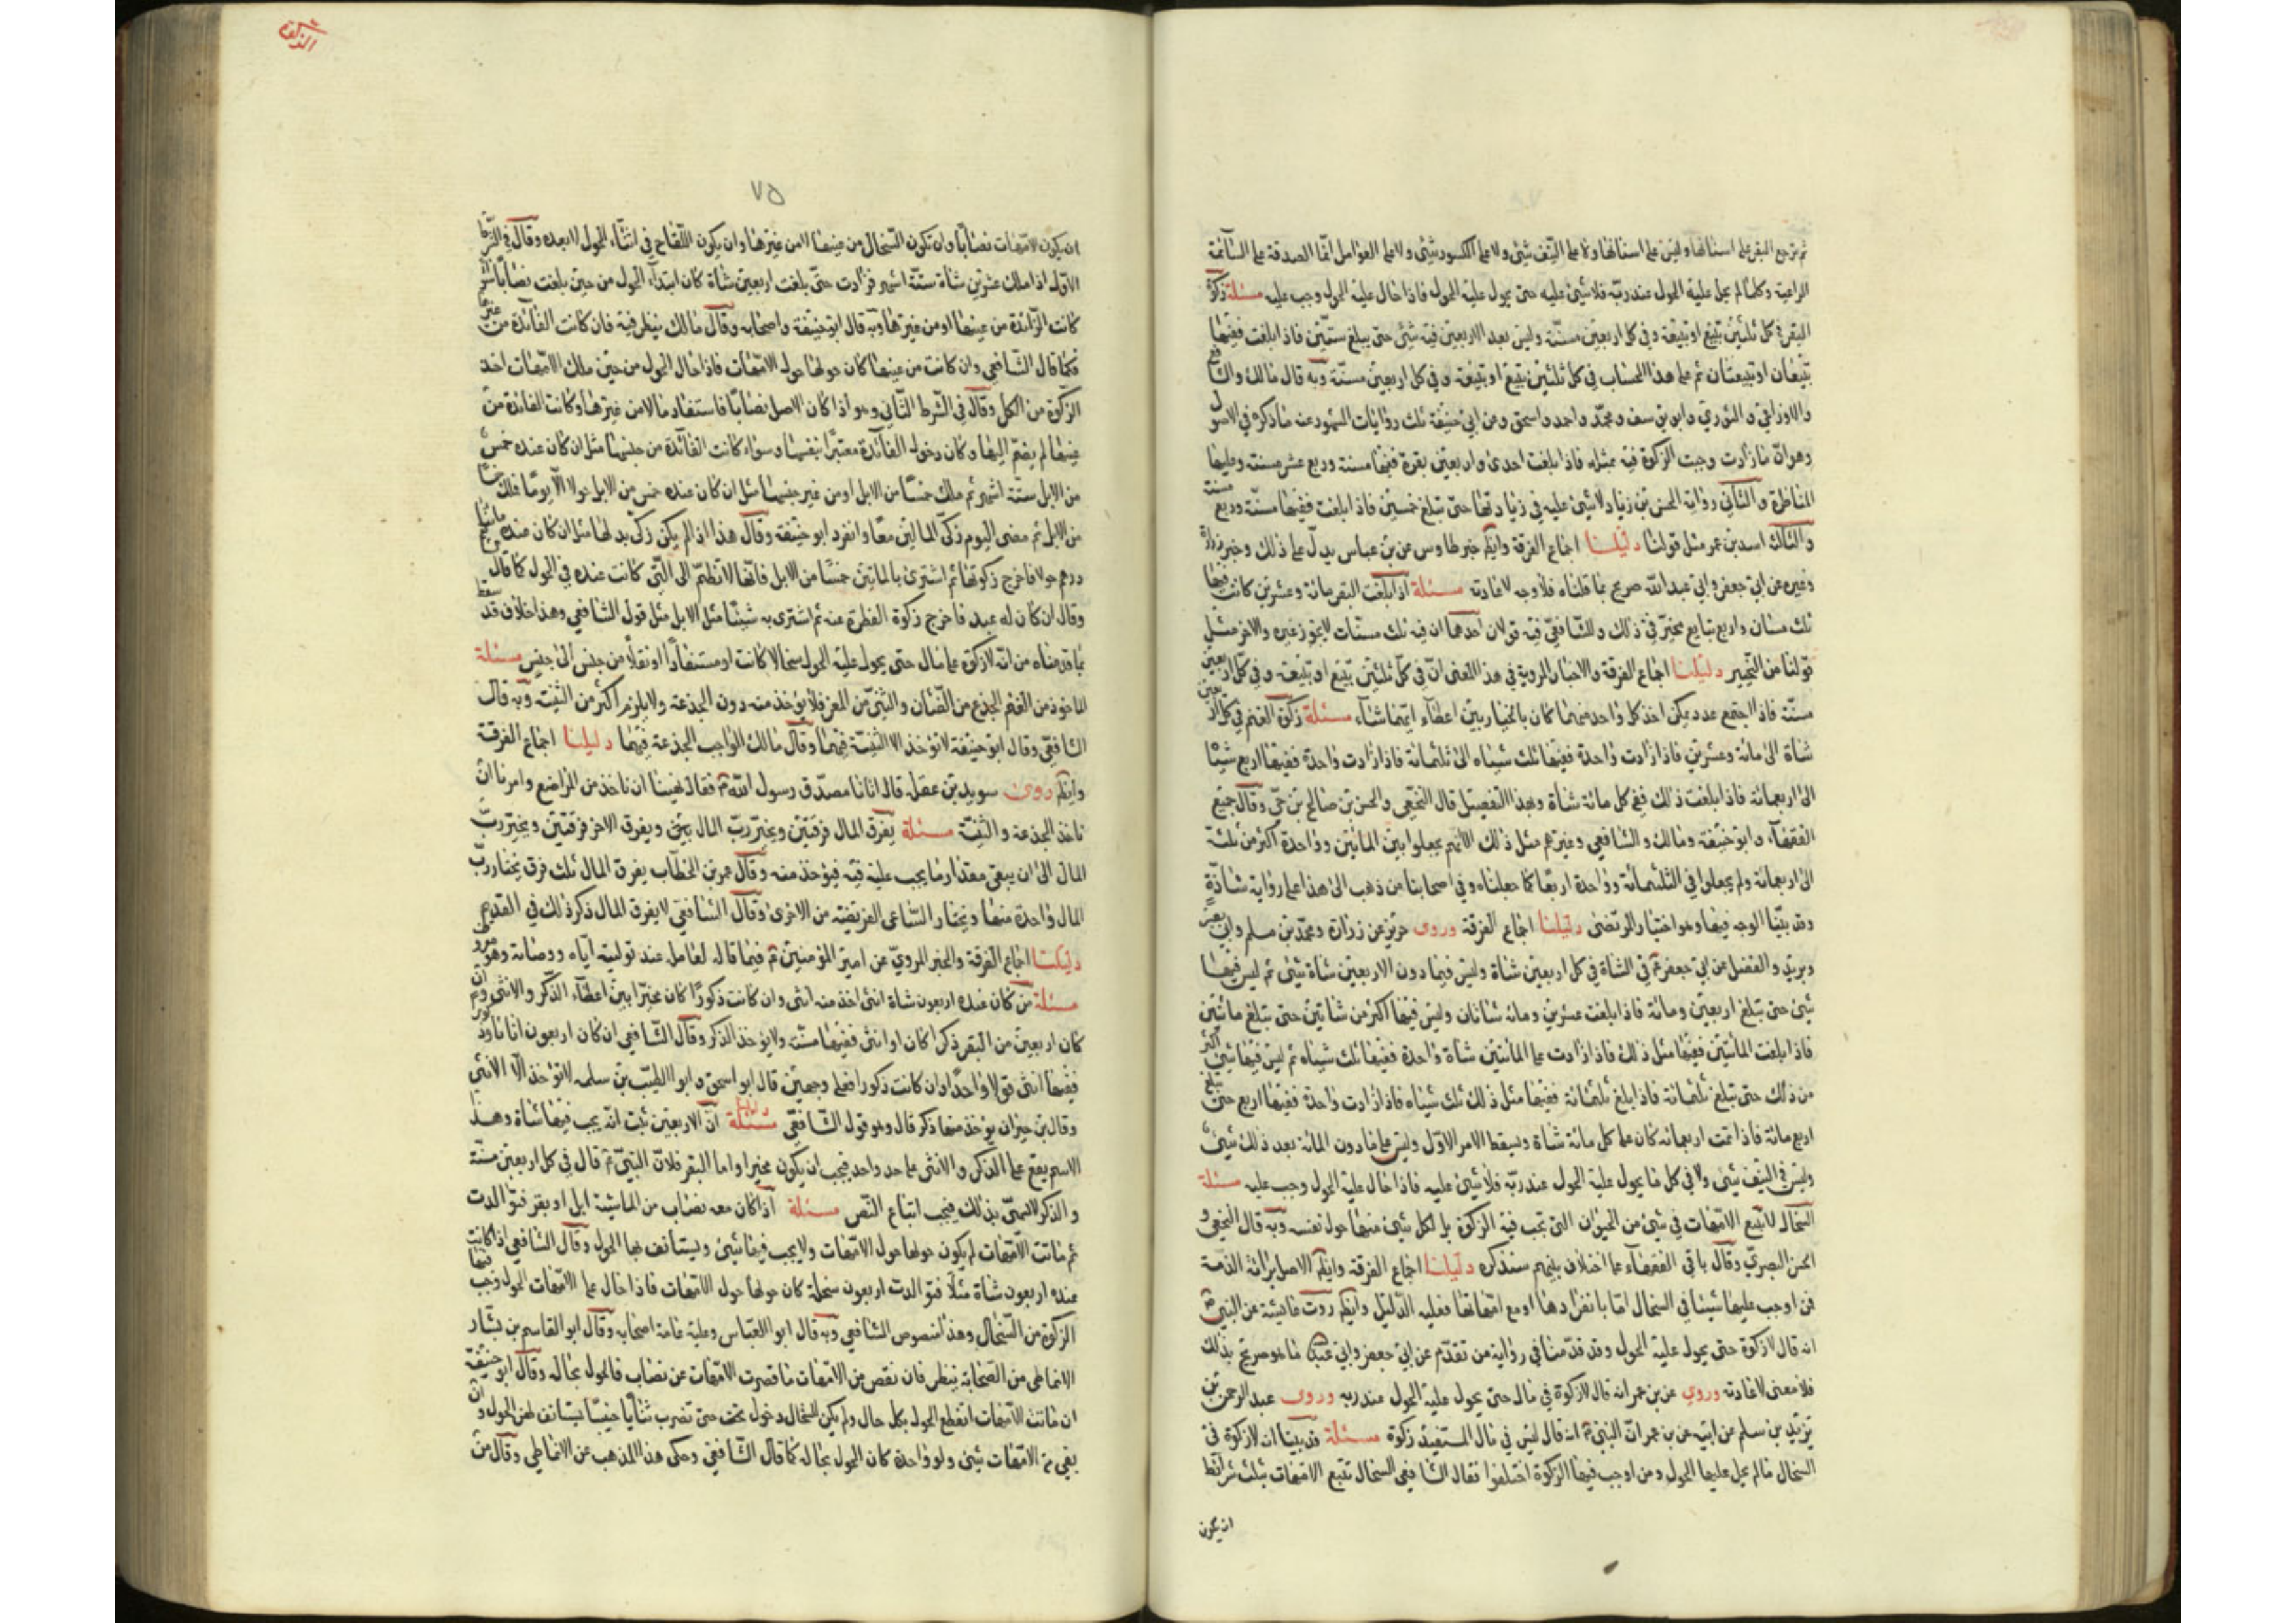 ثم ترجع البقر على اسنانها وليس على اسنانها ولا على النيف شئ ولا على الكسور شئ ولا على العوامل انما الصدقة على السائمة
الراعية وكلما لم يحل عليه الحول عند ربه فلا شئ عليه حتى يحول عليه الحول فاذا حال عليه الحول وجب عليه مسئلة زكوة
البقر في كل ثلثين تبيع او تبيعة وفي كل اربعين مسنة وليس بعد الاربعين فيه شئ حتى يبلغ ستين فاذا بلغت ففيها
تبيعان او تبيعتان ثم على هذا الحساب في كل ثلثين تبيع او تبيعة وفي كل اربعين مسنة وبه قال مالك والشافعي
والاوزاعي والثوري وابو يوسف ومحمد واحمد واسحق وعن ابي حنيفة ثلث روايات المشهور عنه ما ذكره في الاصول
وهو ان ما زادت وجبت الزكوة فيه بمثله فاذا بلغت احدى واربعين بقرة ففيها مسنة وربع عشر مسنة وعليها
المناظرة والثاني رواية الحسن بن زياد لا شئ عليه في زيادتها حتى تبلغ خمسين فاذا بلغت ففيها مسنة وربع مسنة
والثالث اسد بن عمر مثل قولنا دليلنا اجماع الفرقة وايضا خبر طاوس عن بن عباس يدل على ذلك وخبر زرارة
وغيره عن ابي جعفر وابي عبد الله صريح بما قلناه فلا وجه لاعادته مسئلة اذا بلغت البقر مائة وعشرين كانت فيها
ثلث مسان واربع تبايع مخير في ذلك وللشافعي فيه قولان احدهما ان فيه ثلث مسنات لا يجوز غيره والاخر مثل
قولنا من التخيير دليلنا اجماع الفرقة والاخبار المروية في هذا المعنى ان في كل ثلثين تبيع او تبيعة وفي كل اربعين
مسنة فاذا اجتمع عدد يمكن اخذ كل واحد منهما كان بالخيار بين اعطاء ايهما شاء مسئلة زكوة الغنم في كل اربعين
شاة الى مائة وعشرين فاذا زادت واحدة ففيها ثلث شياه الى ثلثمائة فاذا زادت واحدة ففيها اربع شياه
الى اربعمائة فاذا بلغت ذلك ففي كل مائة شاة وبهذا التفصيل قال النخعي والحسن بن صالح بن حي وقال جميع
الفقهاء وابو حنيفة ومالك والشافعي وغيرهم مثل ذلك الا انهم لم يجعلوا بين المائتين وواحدة اكثر من ثلثة
الى اربعمائة ولم يجعلوا في الثلثمائة وواحدة اربعا كما جعلناه وفي اصحابنا من ذهب الى هذا على رواية شاذة
وقد بينا الوجه فيها وهو اختيار المرتضى دليلنا اجماع الفرقة وروى حريز عن زرارة ومحمد بن مسلم وابي بصير
وبريد والفضل عن ابي جعفر في الشاة في كل اربعين شاة وليس فيما دون الاربعين شاة شئ ثم ليس فيها
شئ حتى تبلغ اربعين ومائة فاذا بلغت عشرين ومائة شاتان وليس فيها اكثر من شاتين حتى تبلغ مائتين
فاذا بلغت المائتين ففيها مثل ذلك فاذا زادت على المائتين شاة واحدة ففيها ثلث شياه ثم ليس فيها شئ اكثر
من ذلك حتى تبلغ ثلثمائة فاذا بلغ ثلثمائة ففيها مثل ذلك ثلث شياه فاذا زادت واحدة ففيها اربع حتى تبلغ
اربع مائة فاذا تمت اربعمائة كان على كل مائة شاة ويسقط الامر الاول وليس على ما دون المائة بعد ذلك شئ
وليس في النيف شئ ولا في كل ما يحول عليه الحول عند ربه فلا شئ عليه فاذا حال عليه الحول وجب عليه مسئلة
السخال لا تتبع الامهات في شئ من الحيوان التي تجب فيه الزكوة بل لكل شئ منها حول نفسه وبه قال النخعي و
الحسن البصري وقال باقي الفقهاء على اختلاف بينهم سنذكره دليلنا اجماع الفرقة وايضا الاصل برائة الذمة
فمن اوجب عليها شيئا في السخال اما بانفرادها او مع امهاتها فعليه الدليل وايضا روت عائشة عن النبي
انه قال لا زكوة حتى يحول عليه الحول وقد قدمنا في رواية من تقدم عن ابي جعفر وابي عبد الله ما هو صريح بذلك
فلا معنى لاعادته وروي عن بن عمر انه قال لا زكوة في مال حتى يحول عليه الحول عند ربه وروى عبد الرحمن بن
يزيد بن سلم عن ابيه عن بن عمر ان النبي انه قال ليس في مال المستفيد زكوة مسئلة قد بينا انه لا زكوة في
السخال ما لم يحل عليها الحول ومن اوجب فيها الزكوة اختلفوا فقال الشافعي السخال تتبع الامهات بثلث شرائط
ان يكون
الزكوة
٧٥
ان يكون الامهات نصابا وان تكون السخال من عينها لا من غيرها وان يكون اللقاح في اثناء الحول لا بعده وقال في الشرط
الاول اذا ملك عشرين شاة ستة اشهر فزادت حتى بلغت اربعين شاة كان ابتداء الحول من حين بلغت نصابا سواء
كانت الزائدة من عينها او من غيرها وبه قال ابو حنيفة واصحابه وقال مالك ينظر فيه فان كانت الفائدة من غيرها
فكما قال الشافعي وان كانت من عينها كان حولها حول الامهات فاذا حال الحول من حين ملك الامهات اخذ
الزكوة من الكل وقال في الشرط الثاني وهو اذا كان الاصل نصابا فاستفاد مالا من غيرها وكانت الفائدة من
عينها لم يضم اليها وكان دخول الفائدة معتبرا بنفسها وسواء كانت الفائدة من جنسها مثل ان كان عنده خمس
من الابل ستة اشهر ثم ملك خمسا من الابل او من غير جنسها مثل ان كان عنده خمس من الابل حولا الا يوما فملك خمسا
من الابل ثم مضى اليوم زكى المالين معا وانفرد ابو حنيفة وقال هذا اذا لم يكن زكى بدلها مثل ان كان عنده مائتا
درهم حولا فاخرج زكوتها ثم اشترى بالمائتين خمسا من الابل فانها لا تضم الى التي كانت عنده في الحول كما قال
وقال ان كان له عبد فاخرج زكوة الفطرة عنه ثم اشترى به شيئا مثل الابل مثل قول الشافعي وهذا خلاف قد سقط
بما قدمناه من انه لا زكوة على مال حتى يحول عليه الحول سخالا كانت او مستفادا او نقلا من جنس الى جنس مسئلة
الماخوذ من الغنم الجذع من الضان والثني من المعز فلا يؤخذ منه دون الجذعة ولا يلزم اكثر من الثنية وبه قال
الشافعي وقال ابو حنيفة لا تؤخذ الا الثنية فيهما وقال مالك الواجب الجذعة فيهما دليلنا اجماع الفرقة
وايضا روى سويد بن غفلة قال اتانا مصدق رسول الله فقال نهينا ان ناخذ من الراضع وامرنا ان
ناخذ الجذعة والثنية مسئلة يفرق المال فرقتين ويخير رب المال بين ويفرق الاخر فرقتين ويخير رب
المال الى ان يبقى مقدار ما يجب عليه فيه فيؤخذ منه وقال عمر بن الخطاب يفرق المال ثلث فرق يختار رب
المال واحدة منها ويختار الساعي الفريضة من الاخرى وقال الشافعي لا يفرق المال ذكر ذلك في القديم
دليلنا اجماع الفرقة والخبر المروي عن امير المؤمنين فيما قاله لعامله عند توليته اياه ووصاته وهو معروف
مسئلة من كان عنده اربعون شاة انثى اخذ منه انثى وان كانت ذكورا كان مخيرا بين اعطاء الذكر والانثى وان
كان اربعين من البقر ذكرا كان او انثى ففيها مسنة ولا يؤخذ الذكر وقال الشافعي ان كان اربعون اناثا
ففيها انثى قولا واحدا وان كانت ذكورا فعلى وجهين قال ابو اسحق وابو الطيب بن سلمة لا تؤخذ الا الانثى
وقال بن خيران يؤخذ منها ذكر قال وهو قول الشافعي مسئلة دليلنا ان الاربعين ثبت انه يجب فيها شاة وهذا
الاسم يقع على الذكر والانثى على حد واحد فيجب ان يكون مخيرا واما البقر فلان النبي قال في كل اربعين مسنة
والذكر لا يسمى بذلك فيجب اتباع النص مسئلة اذا كان معه نصاب من الماشية ابل او بقر فتوالدت
ثم ماتت الامهات لم يكون حولها حول الامهات ولا يجب فيها شئ ويستأنف بها الحول وقال الشافعي اذا كانت
عنده اربعون شاة مثلا فتوالدت اربعون سخلة كان حولها حول الامهات فاذا حال على الامهات الحول وجب فيها
الزكوة من السخال وهذا منصوص الشافعي وبه قال ابو العباس وعليه عامة اصحابه وقال ابو القاسم بن بشار
الانماطي من الصحابة ينظر فان نقص من الامهات ما قصرت الامهات عن نصاب فالحول بحاله وقال ابو حنيفة
ان ماتت الامهات انقطع الحول بكل حال ولم يكن للسخال دخول تحت حتى تضرب ثنايا حينئذ يستانف لهن الحول وان
بقى من الامهات شئ ولو واحدة كان الحول بحاله كما قال الشافعي وحكى هذا المذهب عن الانماطي وقال من